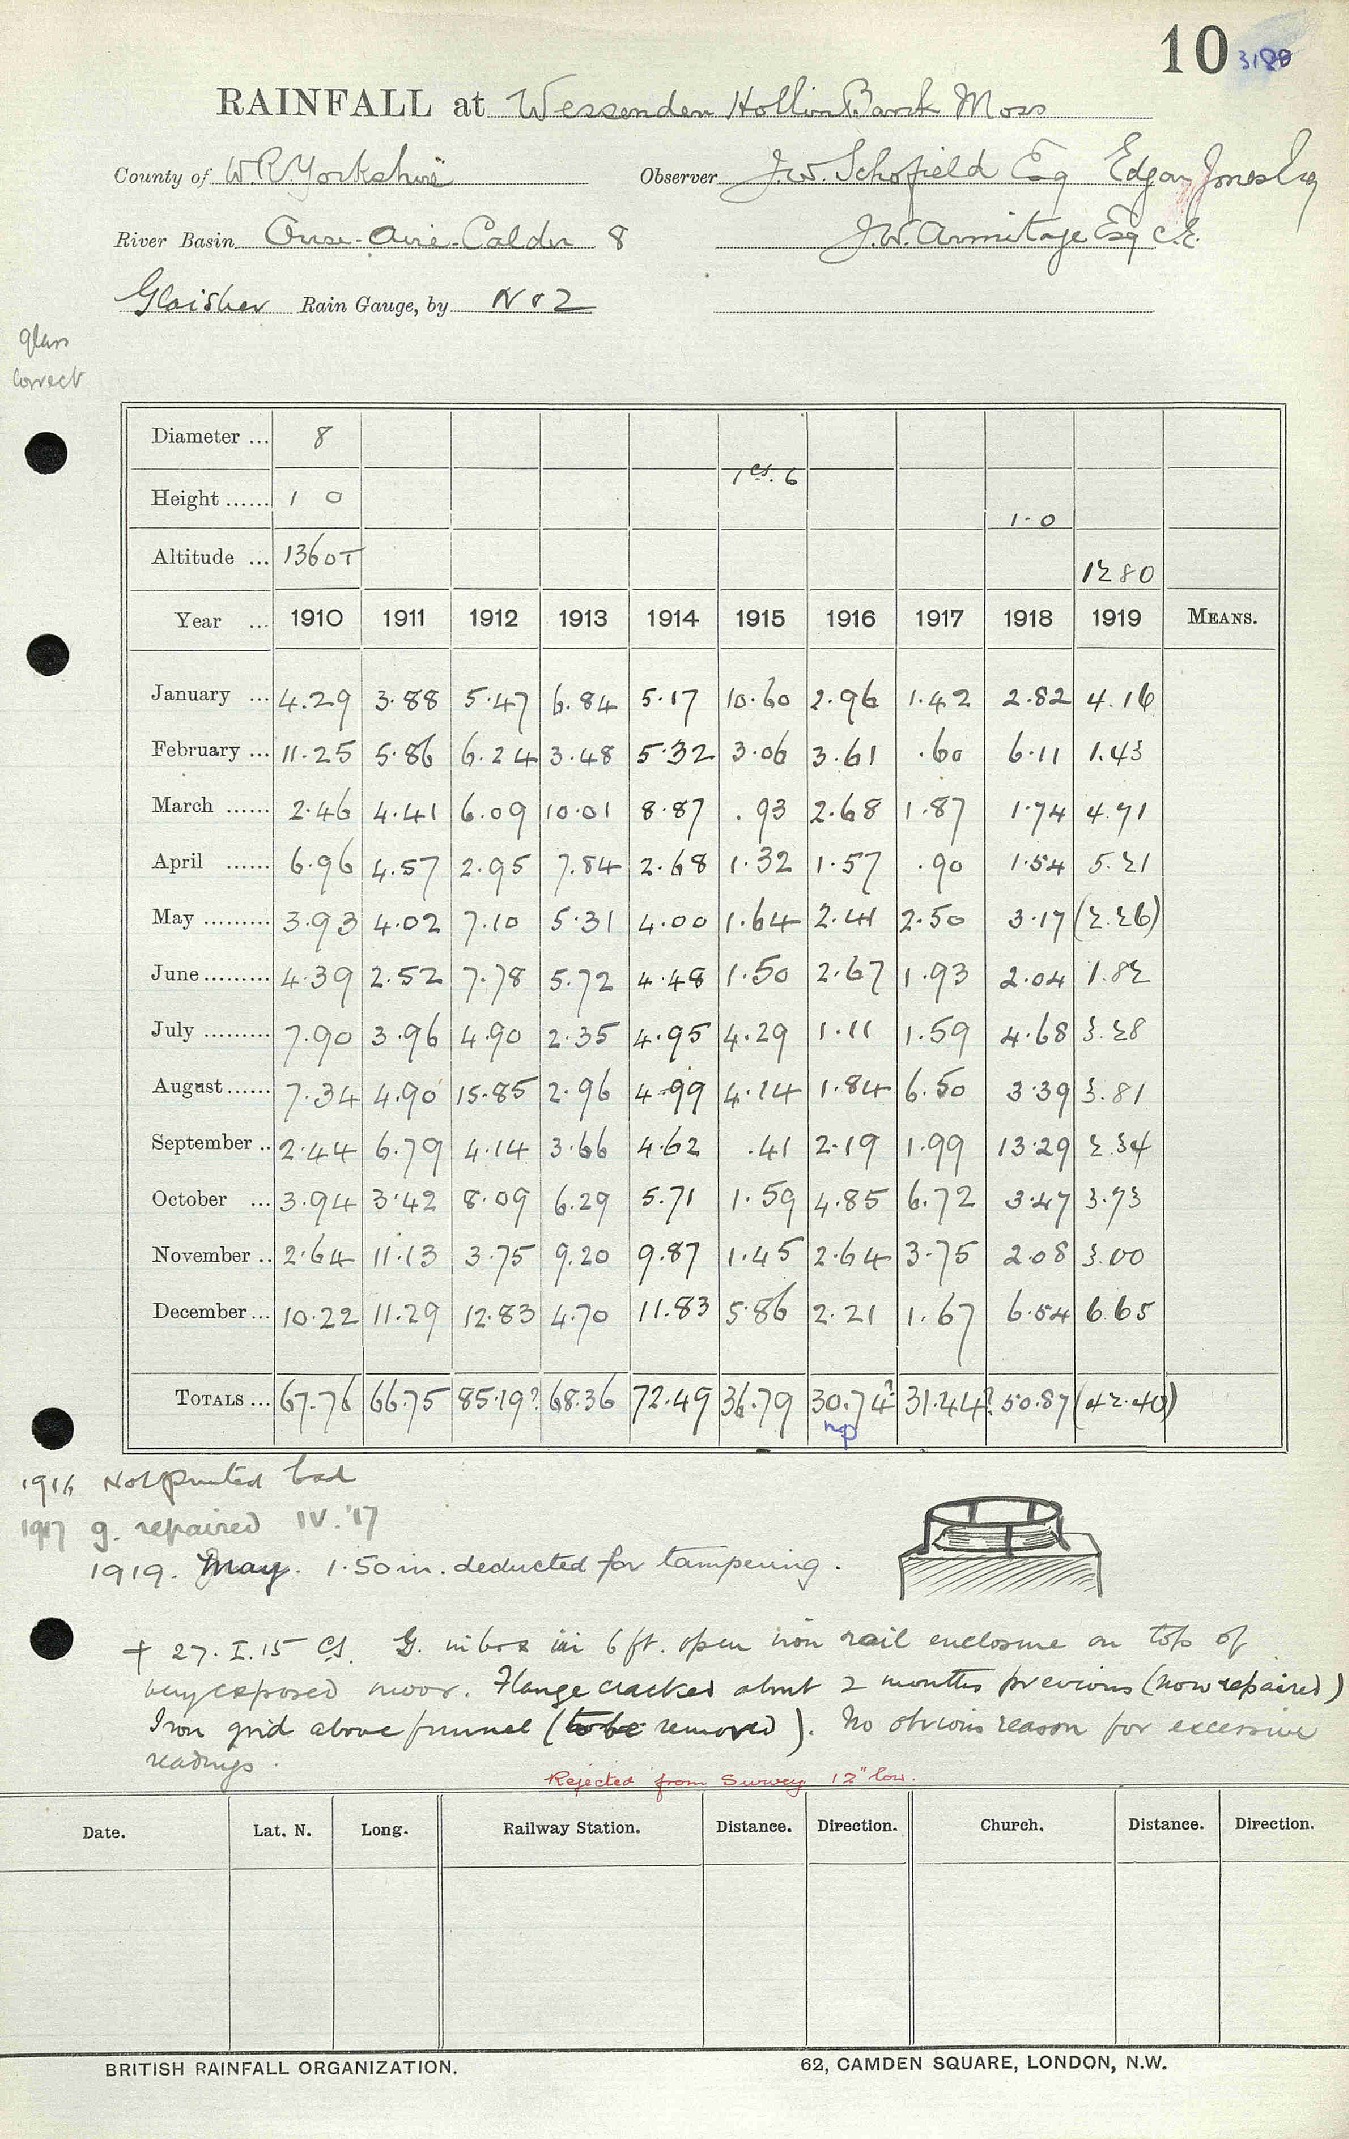 10 3188
RAINFALL at Wessenden Hollin Bank Moss
County of W.R. Yorkshire Observer J.W. Schofield Esq Edgar Jones Esq
River Basin Ouse-Aire-Calder 8 J.W. Armitage Esq C.E.
Glaisher Rain Gauge, by No 2
glass
correct
Diameter ... 8
Height ...... 1 0 1 cs. 6 1.0
Altitude ... 1360T 1280
Year ... 1910 1911 1912 1913 1914 1915 1916 1917 1918 1919 MEANS.
January ... 4.29 3.88 5.47 6.84 5.17 10.60 2.96 1.42 2.82 4.16
February ... 11.25 5.86 6.24 3.48 5.32 3.06 3.61 .60 6.11 1.43
March ...... 2.46 4.41 6.09 10.01 8.87 .93 2.68 1.87 1.74 4.71
April ...... 6.96 4.57 2.95 7.84 2.68 1.32 1.57 .90 1.54 5.21
May ......... 3.93 4.02 7.10 5.31 4.00 1.64 2.41 2.50 3.17 (2.26)
June ......... 4.39 2.52 7.78 5.72 4.48 1.50 2.67 1.93 2.04 1.82
July ......... 7.90 3.96 4.90 2.35 4.95 4.29 1.11 1.59 4.68 3.28
August ...... 7.34 4.90 15.85 2.96 4.99 4.14 1.84 6.50 3.39 3.81
September .. 2.44 6.79 4.14 3.66 4.62 .41 2.19 1.99 13.29 2.34
October ... 3.94 3.42 8.09 6.29 5.71 1.59 4.85 6.72 3.47 3.73
November .. 2.64 11.13 3.75 9.20 9.87 1.45 2.64 3.75 2.08 3.00
December ... 10.22 11.29 12.83 4.70 11.83 5.86 2.21 1.67 6.54 6.65
TOTALS ... 67.76 66.75 85.19? 68.36 72.49 36.79 30.74? 31.44? 50.87 (42.40)
np
1916 Not printed bad
1917 g. repaired IV.'17
1919. May. 1.50 in. deducted for tampering.
+ 27.I.15 CS. G. in box in 6 ft. open iron rail enclosure on top of
very exposed moor. Flange cracked about 2 months previous (now repaired)
Iron grid above funnel (to be removed). No obvious reason for excessive
readings.
Rejected from Survey 12" low.
Date. Lat. N. Long. Railway Station. Distance. Direction. Church. Distance. Direction.
BRITISH RAINFALL ORGANIZATION. 62, CAMDEN SQUARE, LONDON, N.W.